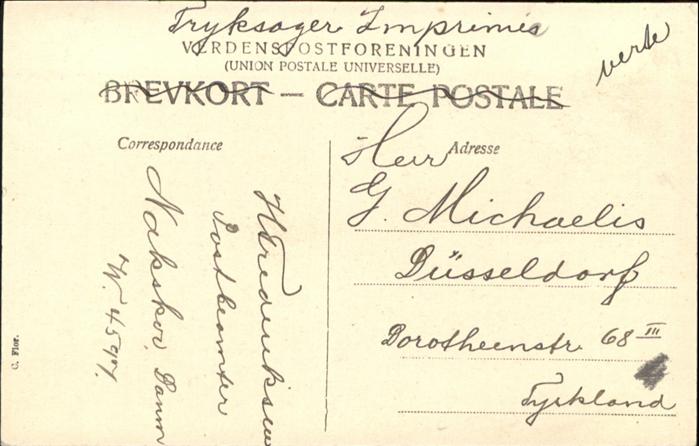 Tryksager Imprimés
VERDENSPOSTFORENINGEN
(UNION POSTALE UNIVERSELLE)
BREVKORT — CARTE POSTALE
verte
Correspondance
Adresse
Herr
G. Michaelis
Düsseldorf
Dorotheenstr. 68 III
Tyskland
Frederiksen
Postbeamter
Nakskov, Danm
N. 4597.
C. Flor.